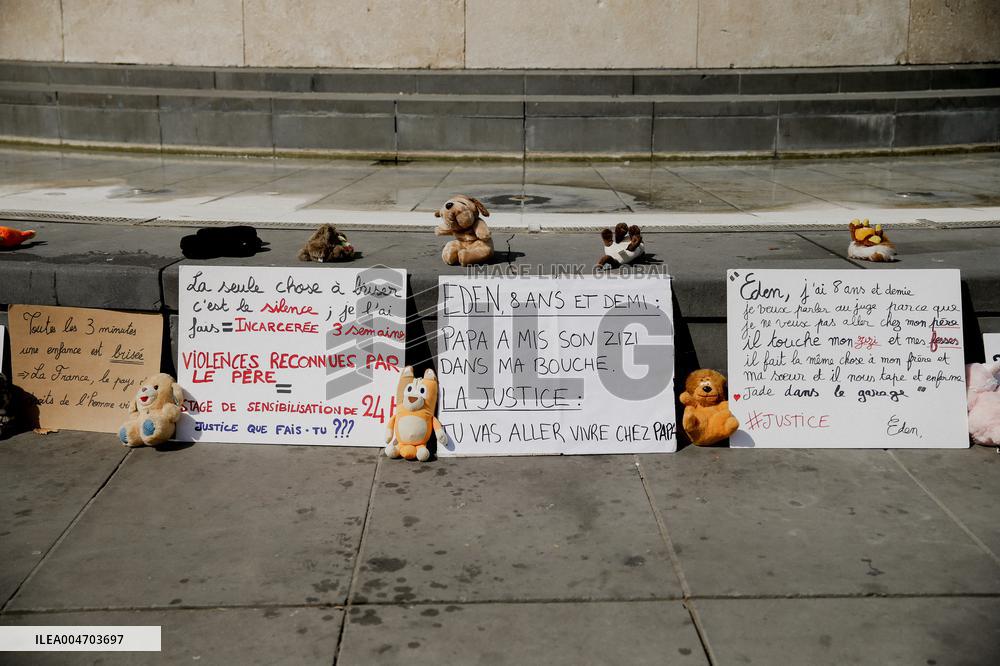 Toutes les 3 minutes
une enfance est brisée
=> La France, le pays
droits de l'Homme
La seule chose à briser
c'est le silence ; je l'ai
fais = INCARCERÉE 3 semaines
VIOLENCES RECONNUES PAR
LE PÈRE =
STAGE DE SENSIBILISATION DE 24
JUSTICE QUE FAIS-TU ???
EDEN, 8 ANS ET DEMI :
PAPA A MIS SON ZIZI
DANS MA BOUCHE.
LA JUSTICE :
TU VAS ALLER VIVRE CHEZ PAPA
"Eden, j'ai 8 ans et demie
je veux parler au juge parce que
je ne veux pas aller chez mon père
il touche mon zizi et mes fesses
il fait la même chose à mon frère et
ma sœur et il nous tape et enferme
Jade dans le garage "
#JUSTICE Eden,
IMAGE LINK GLOBAL
ILG
ILEA004703697